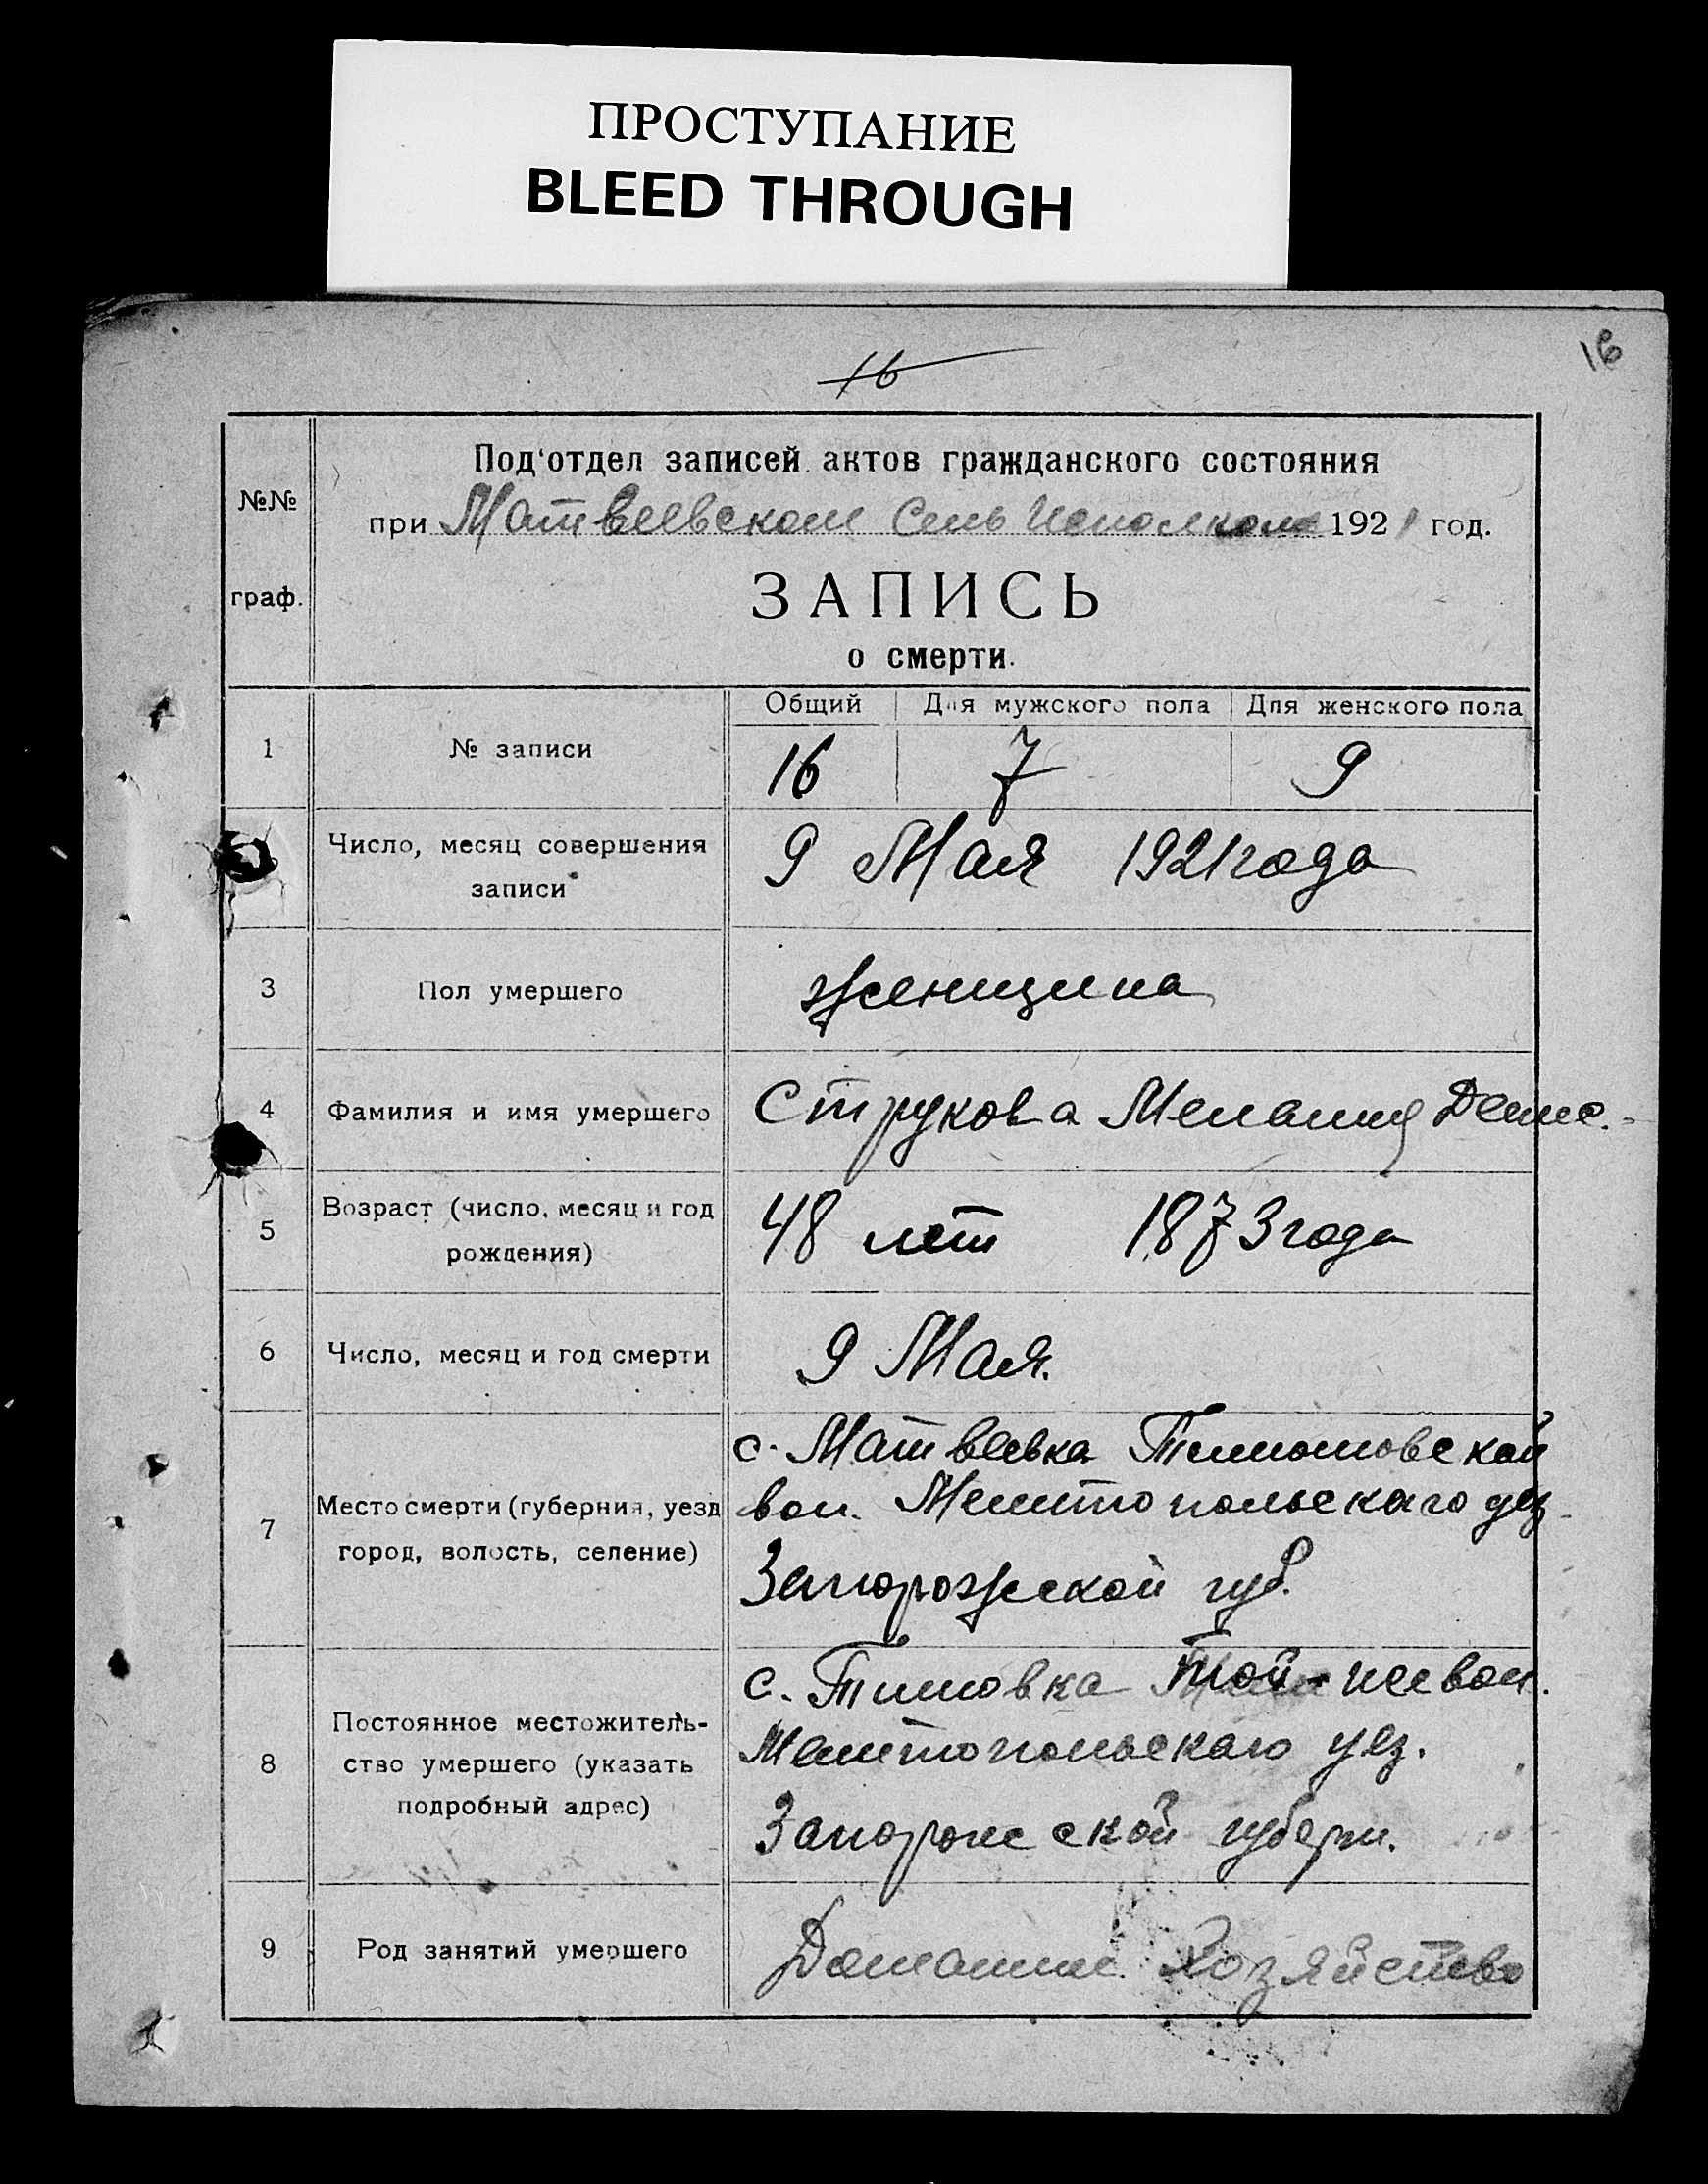 ПРОСТУПАНИЕ
BLEED THROUGH
16
16
Под'отдел записей актов гражданского состояния
№№
при Матвеевском Сель Исполкоме 1921 год.
граф.
ЗАПИСЬ
о смерти.
Общий Для мужского пола Для женского пола
1 № записи 16 7 9
Число, месяц совершения
записи
9 Мая 1921 года
3 Пол умершего женщина
4 Фамилия и имя умершего Струкова Мелания Денис.
5 Возраст (число, месяц и год
рождения)
48 лет 1873 года
6 Число, месяц и год смерти 9 Мая.
7 Место смерти (губерния, уезд
город, волость, селение)
с. Матвеевка Тимошовской
вол. Мелитопольскаго уез
Запорожской губ.
8 Постоянное местожитель-
ство умершего (указать
подробный адрес)
с. Тимовка той-же вол.
Мелитопольскаго уез.
Запорожской губерн.
9 Род занятий умершего Домашн. Хозяйство